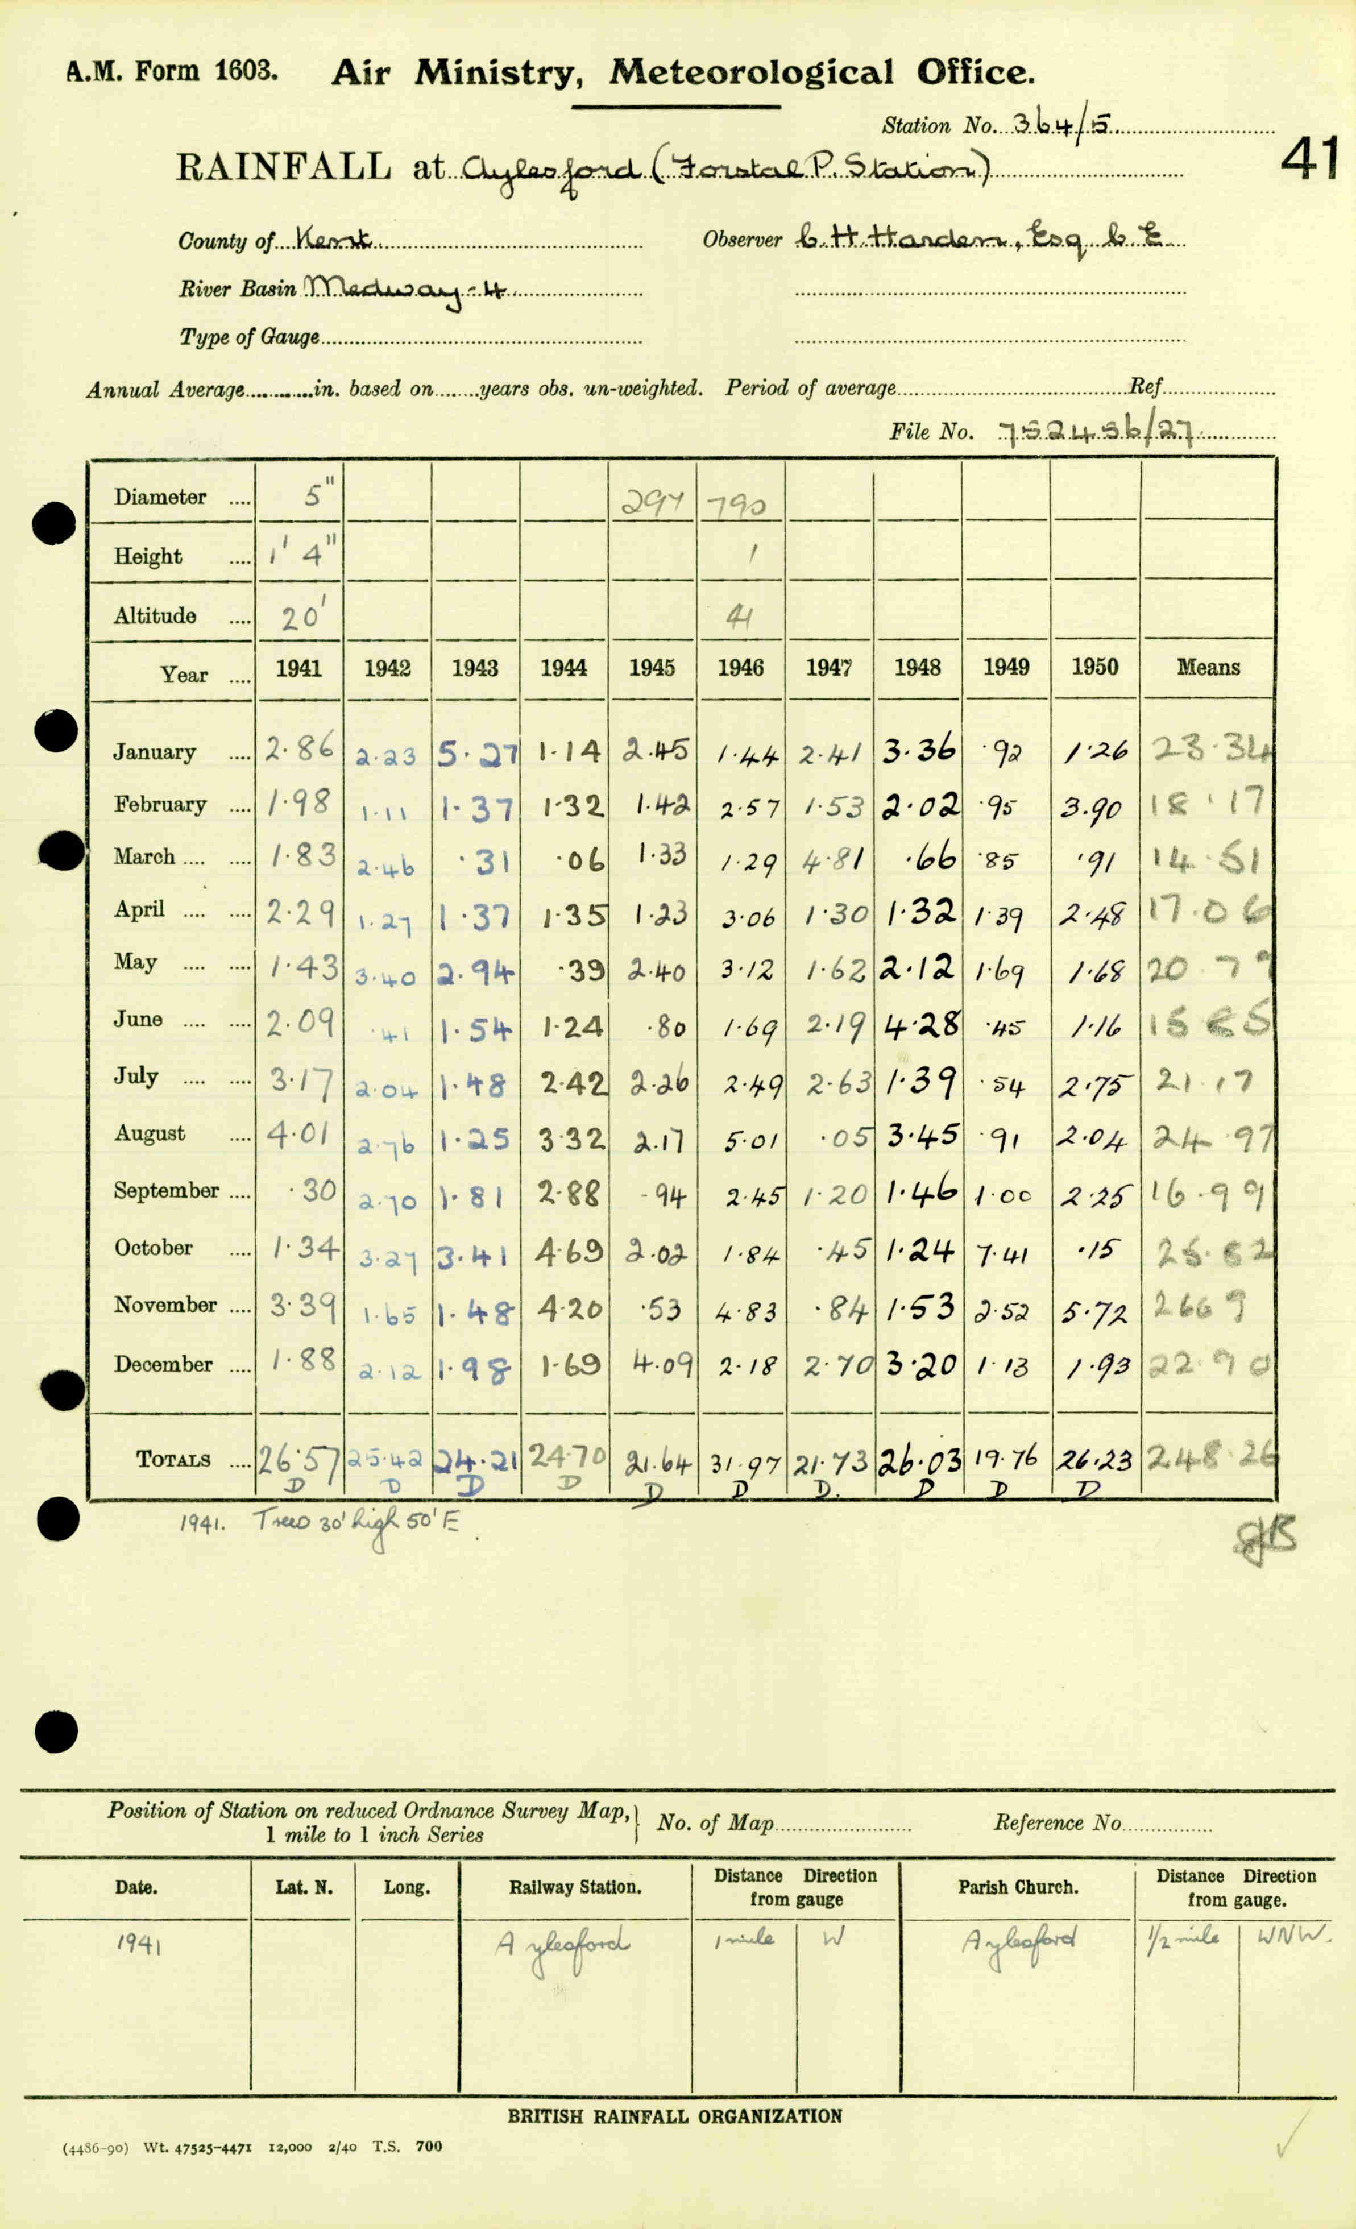 A.M. Form 1603. Air Ministry, Meteorological Office.
Station No. 364/5
41
RAINFALL at Aylesford (Forstal P. Station)
County of Kent Observer C. H. Harden, Esq C E
River Basin Medway - 4
Type of Gauge
Annual Average in. based on years obs. un-weighted. Period of average Ref.
File No. 752456/27
Diameter .... 5" 297 790
Height .... 1' 4" 1
Altitude .... 20' 41
Year .... 1941 1942 1943 1944 1945 1946 1947 1948 1949 1950 Means
January .... 2.86 2.23 5.27 1.14 2.45 1.44 2.41 3.36 .92 1.26 23.34
February .... 1.98 1.11 1.37 1.32 1.42 2.57 1.53 2.02 .95 3.90 18.17
March .... .... 1.83 2.46 .31 .06 1.33 1.29 4.81 .66 .85 .91 14.51
April .... .... 2.29 1.27 1.37 1.35 1.23 3.06 1.30 1.32 1.39 2.48 17.06
May .... .... 1.43 3.40 2.94 .39 2.40 3.12 1.62 2.12 1.69 1.68 20.79
June .... .... 2.09 .41 1.54 1.24 .80 1.69 2.19 4.28 .45 1.16 15.85
July .... .... 3.17 2.04 1.48 2.42 2.26 2.49 2.63 1.39 .54 2.75 21.17
August .... 4.01 2.76 1.25 3.32 2.17 5.01 .05 3.45 .91 2.04 24.97
September .... .30 2.70 1.81 2.88 .94 2.45 1.20 1.46 1.00 2.25 16.99
October .... 1.34 3.27 3.41 4.69 2.02 1.84 .45 1.24 7.41 .15 25.82
November .... 3.39 1.65 1.48 4.20 .53 4.83 .84 1.53 2.52 5.72 26.69
December .... 1.88 2.12 1.98 1.69 4.09 2.18 2.70 3.20 1.13 1.93 22.90
TOTALS .... 26.57 25.42 24.21 24.70 21.64 31.97 21.73 26.03 19.76 26.23 248.26
D D D D D D D. D D D
1941. Trees 30' high 50' E.
Position of Station on reduced Ordnance Survey Map, No. of Map Reference No.
1 mile to 1 inch Series
Date. Lat. N. Long. Railway Station. Distance from gauge Direction Parish Church. Distance from gauge. Direction
1941 Aylesford 1 mile W Aylesford 1/2 mile WNW.
BRITISH RAINFALL ORGANIZATION
(4486-90) Wt. 47525-4471 12,000 2/40 T.S. 700